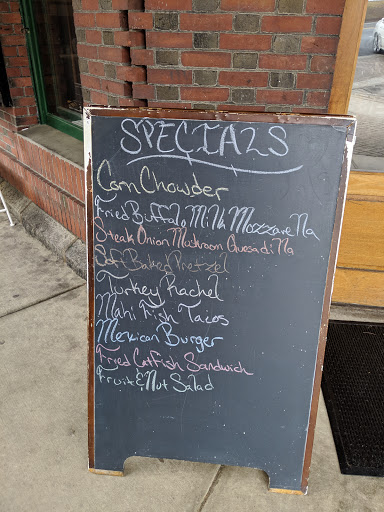 SPECIALS
Corn Chowder
Fried Buffalo Milk Mozzarella
Steak Onion Mushroom Quesadilla
Soft Baked Pretzel
Turkey Rachel
Mahi Fish Tacos
Mexican Burger
Fried Catfish Sandwich
Fruit & Nut Salad